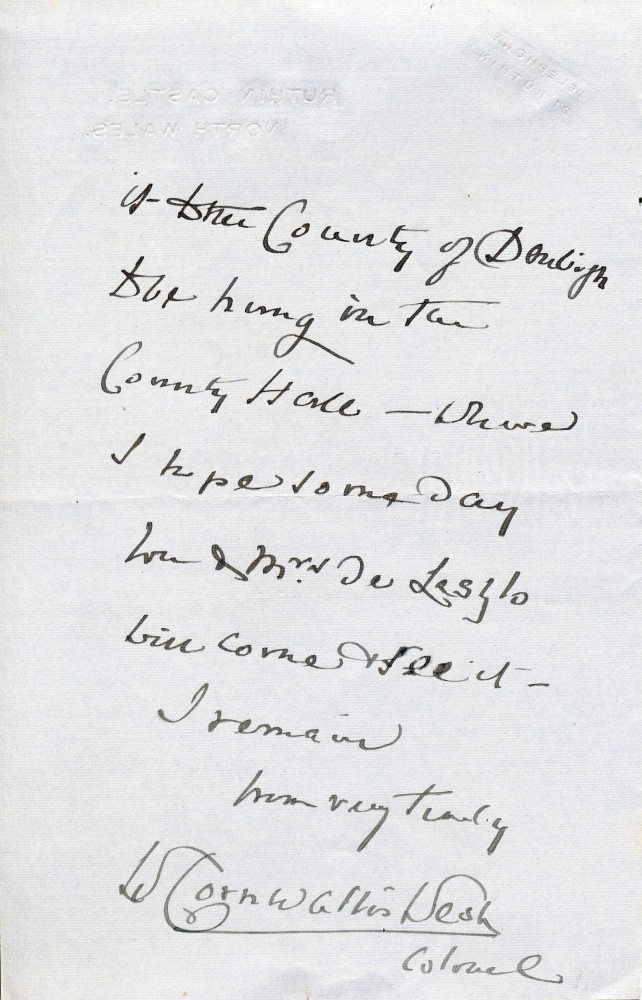 TELEPHONE
RUTHIN.
RUTHIN CASTLE.
NORTH WALES.
it to the County of Denbigh
to be hung in the
County Hall — where
I hope some day
you & Mrs. De Laszlo
will come & see it —
I remain
yours very truly
W Cornwallis West
Colonel